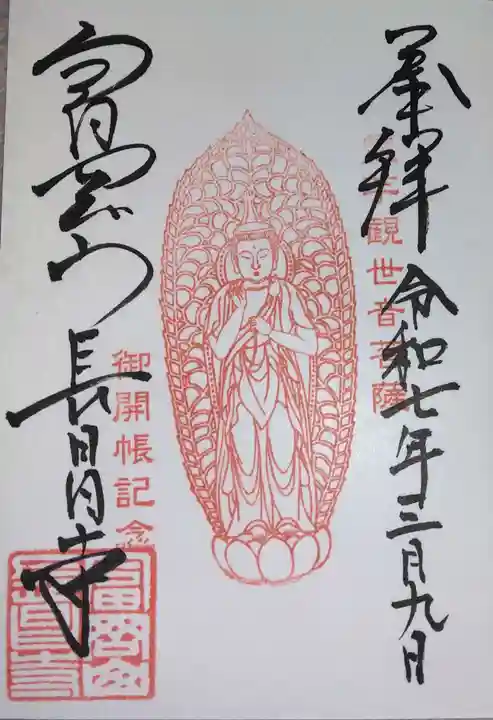 奉拝
観世音菩薩
令和七年三月九日
御開帳記念
富岡山
長昌寺